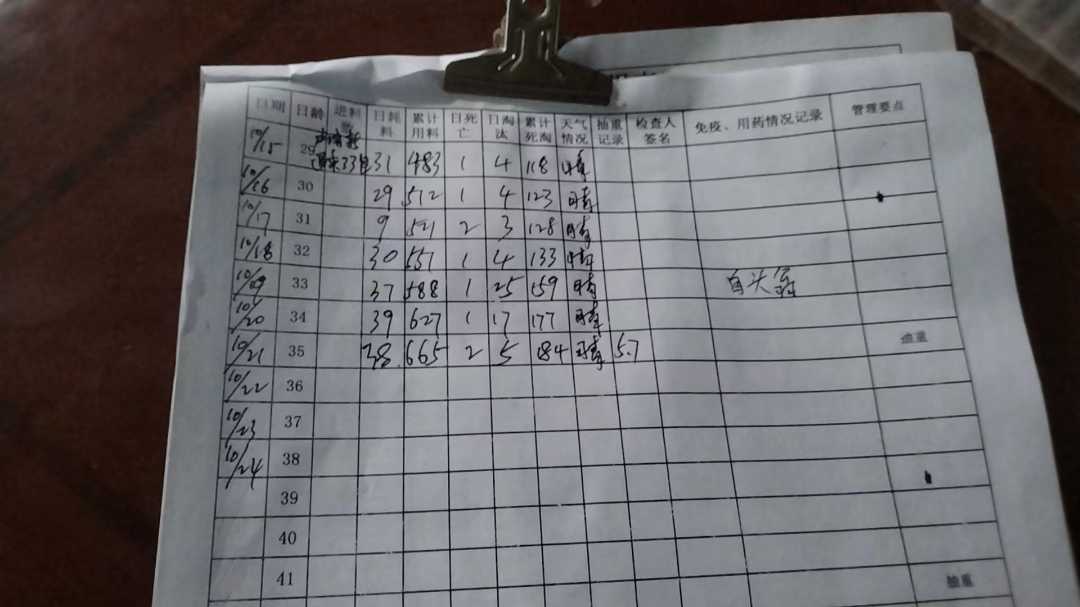 日期 日龄 进料 日耗料 累计用料 日死亡 日淘汰 累计死淘 天气情况 抽重记录 检查人签名 免疫、用药情况记录 管理要点
10/15 29 31 483 1 4 118 晴
10/16 30 29 512 1 4 123 晴
10/17 31 9 521 2 3 128 晴
10/18 32 30 551 1 4 133 晴
10/19 33 37 588 1 25 159 晴
10/20 34 39 627 1 17 177 晴
10/21 35 38 665 2 5 184 晴 5.7 抽重
10/22 36
10/23 37
10/24 38
39
40
41 抽重